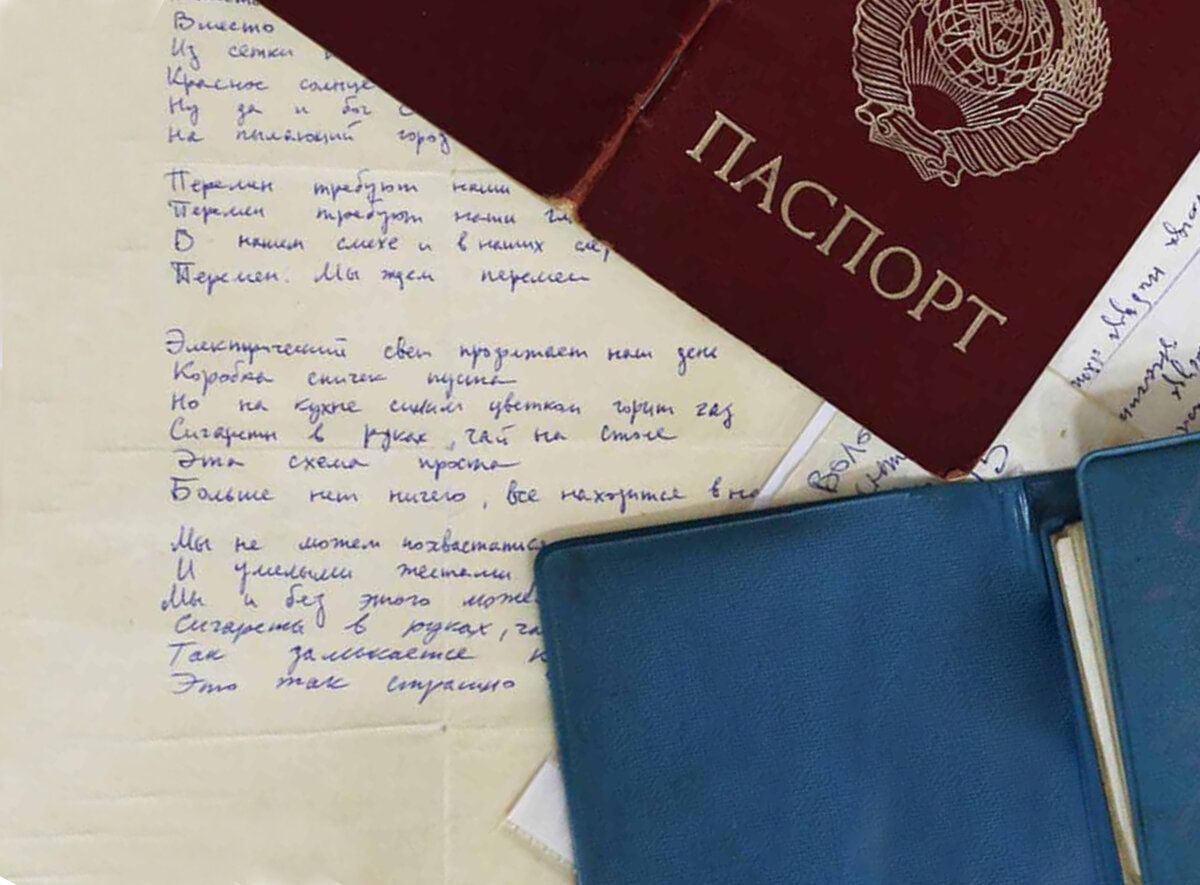 Вместо
Из сетки
Красное солнце
Ну да и бог с
На пылающий город
Перемен требуют наши
Перемен требуют наши гла
В нашем смехе и в наших сле
Перемен. Мы ждем перемен
Электрический свет продолжает наш день
Коробка спичек пуста
Но на кухне синим цветком горит газ
Сигареты в руках, чай на столе
Эта схема проста
Больше нет ничего, все находится в на
Мы не можем похвастаться
И умелыми жестами
Мы и без этого може
Сигареты в руках, ча
Так замыкается к
Это так страшно
ПАСПОРТ